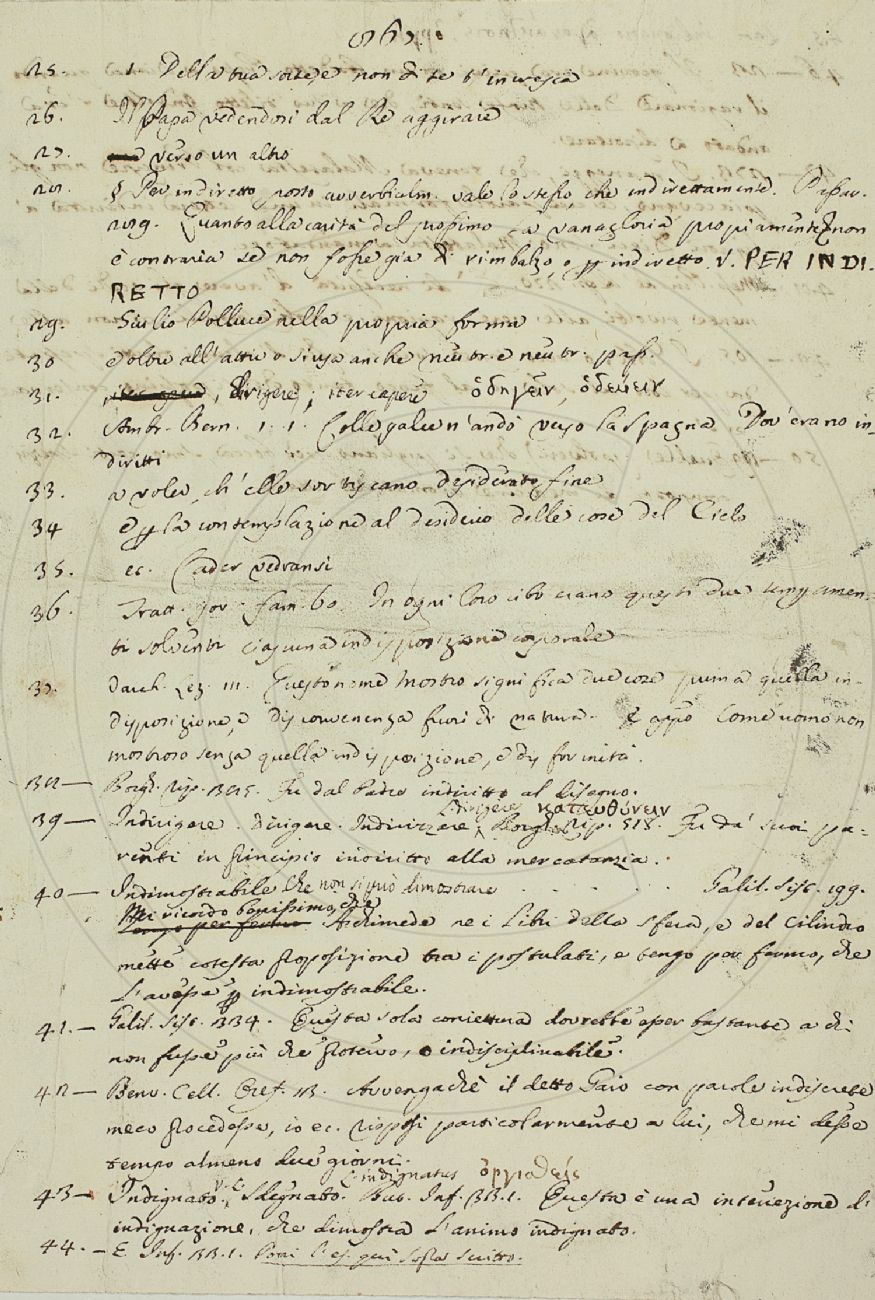 (367.
25. 1. Della tua sorte, e non di te t'incresca
26. Il Papa vedendosi dal Re aggirare
27. verso un altro
28. § Per indiretto, posto avverbialm. vale lo stesso, che indirettamente. Passav.
219. Quanto alla carità del prossimo la vanagloria propiamente non
è contraria se non fosse già di rimbalzo, o p indiretto. V. PER INDI-
RETTO
29. Giulio Polluce nella propria forma
30 e oltre all'att. si usa anche neutr. e neutr. pass.
31. , dirigere, iter capere ὁδηγεῖν, ὁδεύειν
32. Ambr. Bern. 1. 1. Colle galee n'andò verso la Spagna Dov'erano in-
diritti
33. a voler, ch'elle sortiscano desiderato fine
34 e p la contemplazione al desiderio delle cose del Cielo
35. ec. Cader vedransi
36. Tratt. gov. fam. 60. In ogni loro cibo ciano questi due
ti solventi ciascuna indisposizione corporale
37. Varch. Lez. 111. Questo nome Mostro significa due cose prima quella in-
disposizione, e disconvenenza fuori di natura. E appo Come uomo non
mostroso senza quella indisposizione, e disformità.
38 — Borgh. Rip. 385. Fu dal Padre indiritto al disegno.
L. dirigere κατευθύνειν
39 — Indirigere. Dirigere. Indirizzare, Borgh. Rip. 518. Fu da' suoi pa-
renti in principio indiritto alla mercatanzia.
40 — Indimostrabile Che non si può dimostrare . . . . . . Galil. Sist. 199.
Mi ricordo benissimo, che
Tengo per fermo Archimede ne i Libri della Sfera, e del Cilindro
mette cotesta proposizione tra i postulati, e tengo per fermo, che
l'avesse p indimostrabile.
41. — Galil. Sist. 334. Questa sola coniettura dovrebbe esser bastante a chi
non fusse più che protervo, e indisciplinabile.
42 — Benv. Cell. Oref. 13. Avvengachè il detto Gaio con parole indiscrete
meco procedesse, io ec. risposi particolarmente a lui, che mi desse
tempo almeno due giorni.
L. indignatus ὀργισθείς
43 — Indignato, Sdegnato. But. Inf. 33. 1. Questa è una interiezione di
indignazione, che dimostra l'animo indignato.
44. — E Inf. 33. 1. Poni l'es. qui sopra scritto.